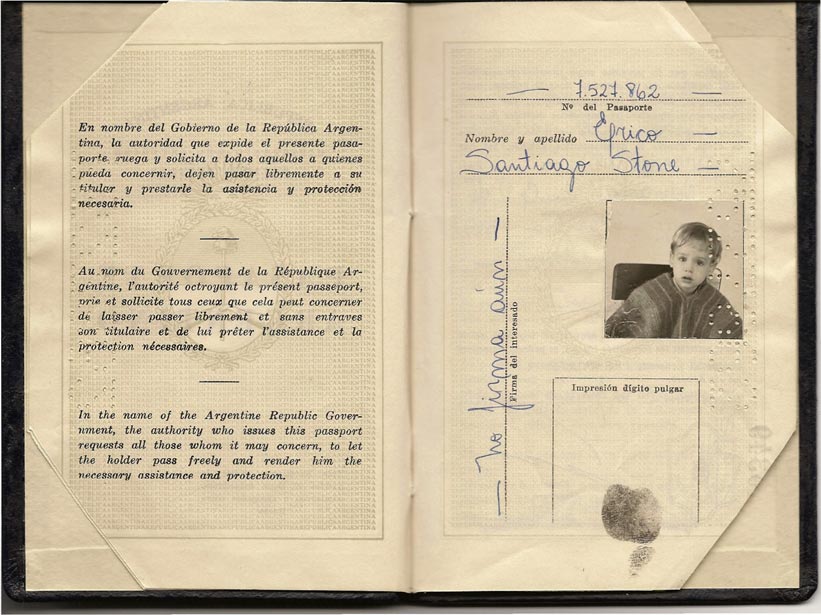 En nombre del Gobierno de la República Argen-
tina, la autoridad que expide el presente pasa-
porte, ruega y solicita a todos aquellos a quienes
pueda concernir, dejen pasar libremente a su
titular y prestarle la asistencia y protección
necesaria.
Au nom du Gouvernement de la République Ar-
gentine, l'autorité octroyant le présent passeport,
prie et sollicite tous ceux que cela peut concerner
de laisser passer librement et sans entraves
son titulaire et de lui prêter l'assistance et la
protection nécessaires.
In the name of the Argentine Republic Gover-
nment, the authority who issues this passport
requests all those whom it may concern, to let
the holder pass freely and render him the
necessary assistance and protection.
— 7.527.862 —
Nº del Pasaporte
Nombre y apellido Erico —
Santiago Stone —
— no firma aún —
Firma del interesado
Impresión dígito pulgar